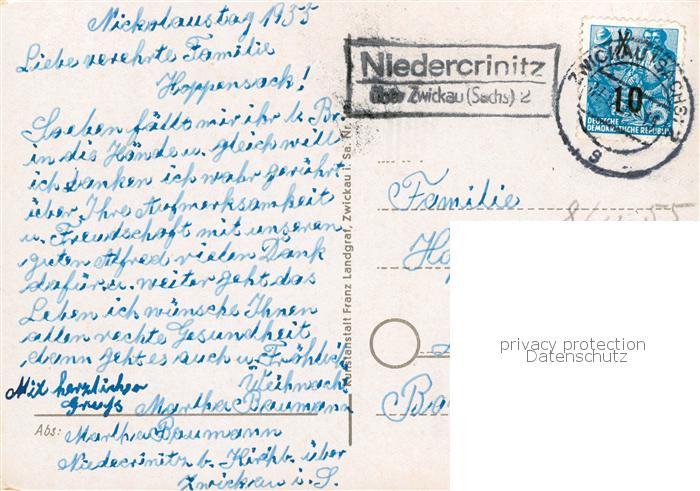 Nickolaustag 1955
Liebe verehrte Familie
Hoppensack!
Soeben fällt mir ihr l. Br.
in die Hände u. gleich will
ich danken ich wahr gerührt
über Ihre Aufmerksamkeit
u. Freundschaft mit unseren
guten Alfred vielen Dank
dafür. u. weiter geht das
Leben ich wünsche Ihnen
allen rechte Gesundheit
dann geht es auch u. Fröhlich
Weihnacht
Mit herzlichen
Gruß Martha Baumann
Abs: Martha Baumann
Niedecrinitz b. Kirchb. über
Zwickau i. S.
Kunstanstalt Franz Landgraf, Zwickau i. Sa. Nr.
Niedercrinitz
über Zwickau (Sachs) 2
ZWICKAU (SACHS) 2
10
DEUTSCHE
DEMOKRATISCHE REPUBLIK
Familie
privacy protection
Datenschutz